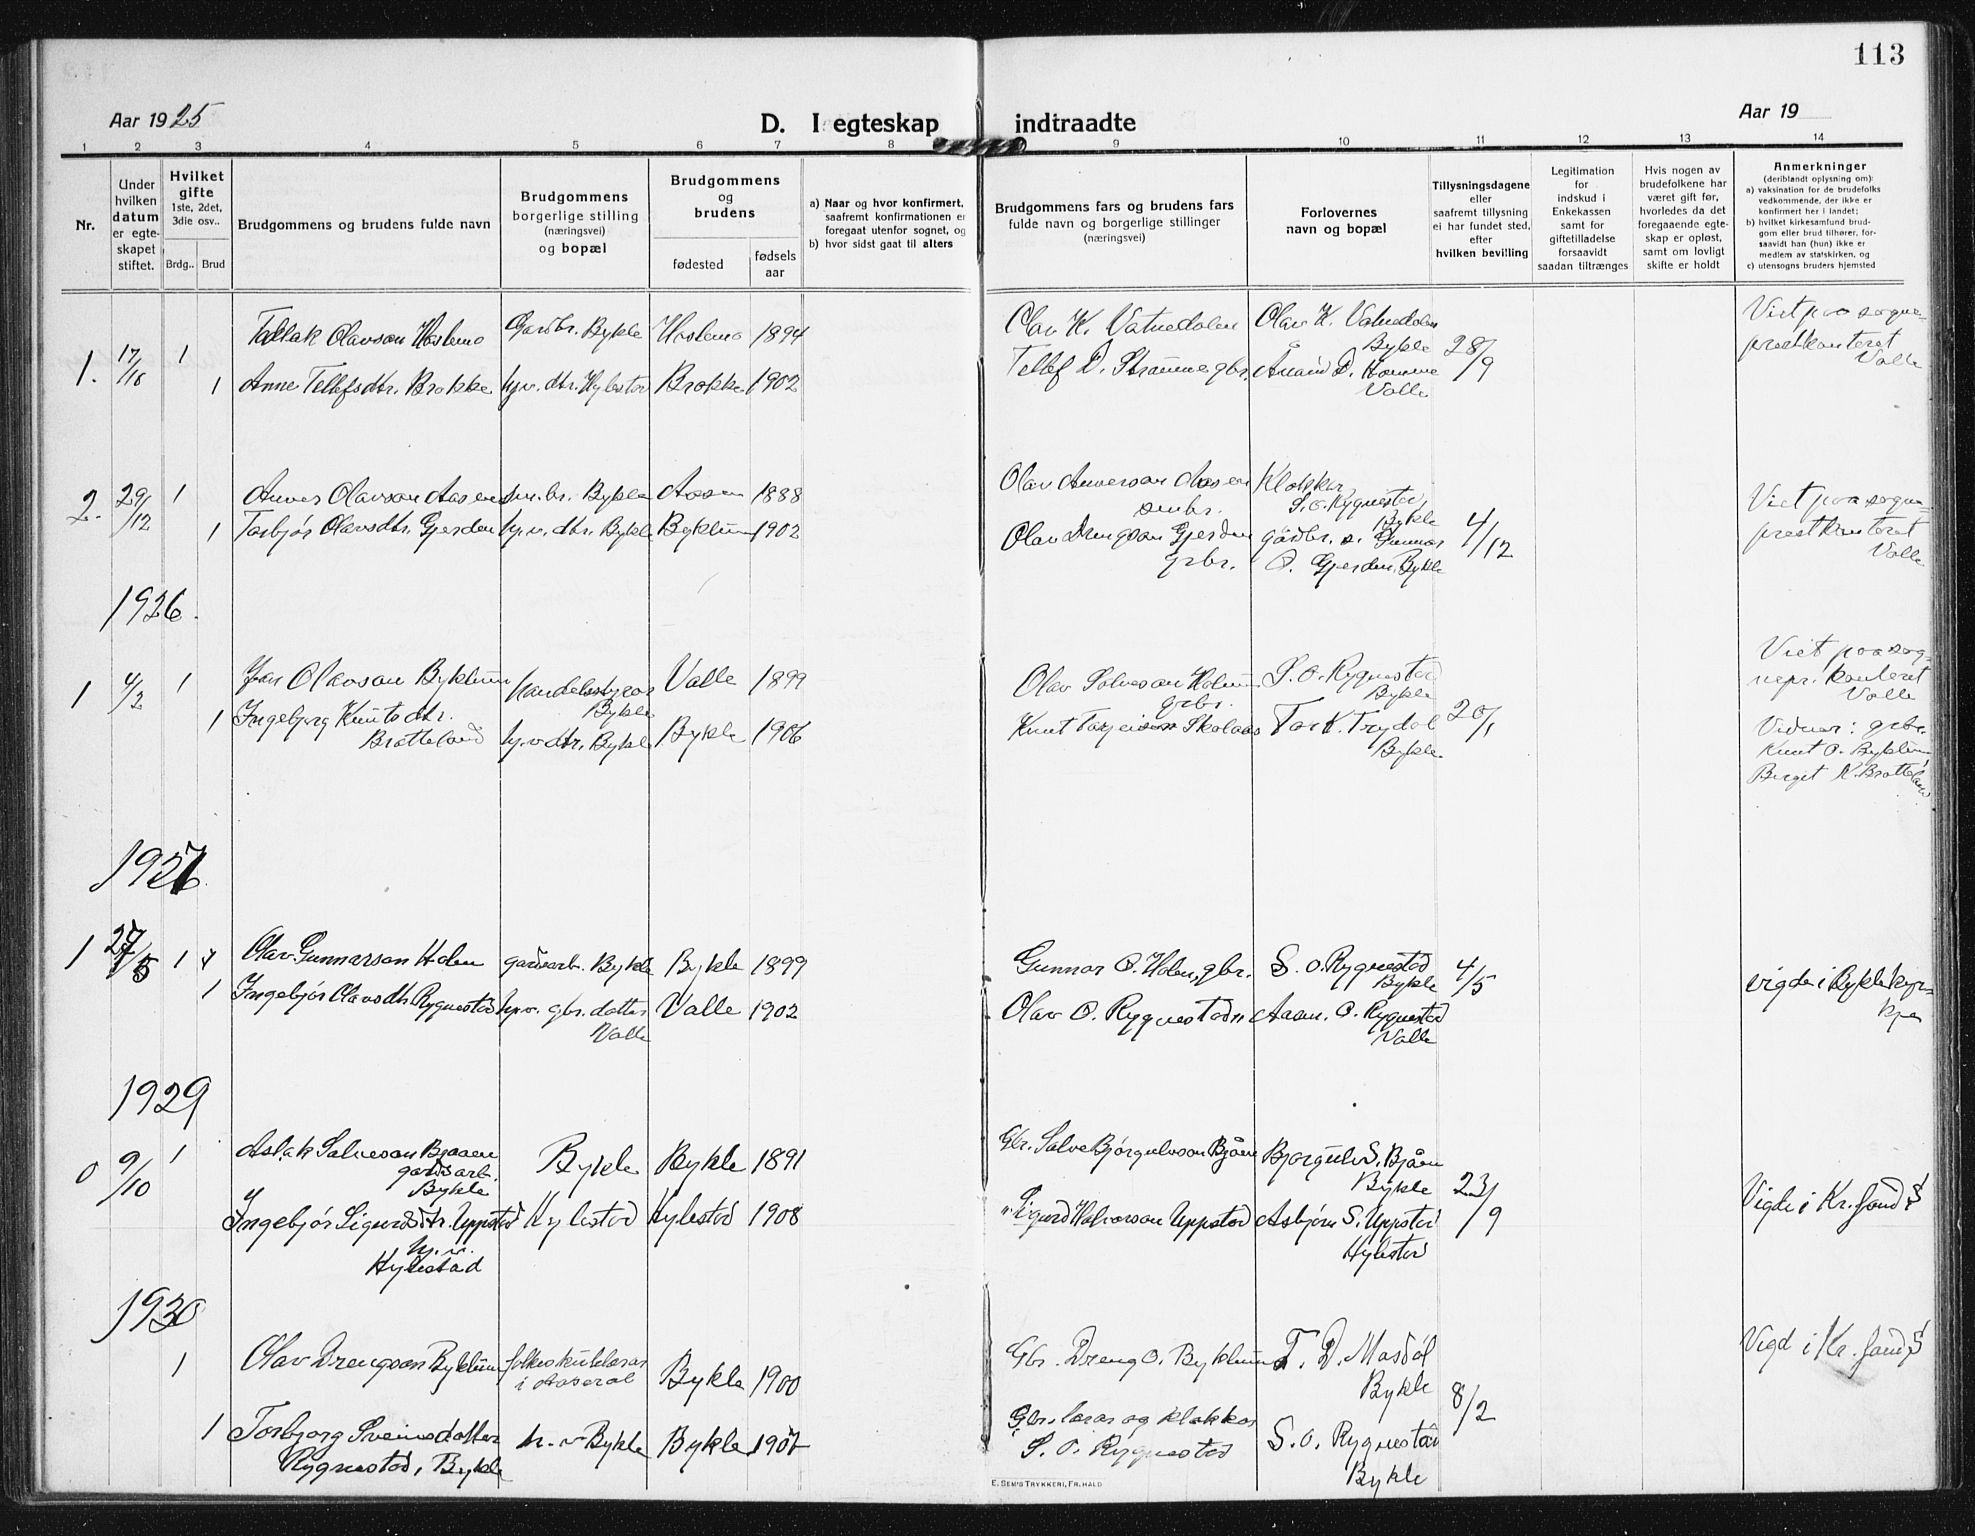 113
Aar 1925
D. I egteskap indtraadte
Aar 19
1 2 3 4 5 6 7 8 9 10 11 12 13 14
Nr.
Under hvilken datum er egteskapet stiftet.
Hvilket gifte 1ste, 2det, 3die osv..
Brdg.. Brud
Brudgommens og brudens fulde navn
Brudgommens borgerlige stilling (næringsvei) og bopæl
Brudgommens og brudens
fødested
fødsels aar
a) Naar og hvor konfirmert, saafremt konfirmationen er foregaat utenfor sognet, og
b) hvor sidst gaat til alters
Brudgommens fars og brudens fars fulde navn og borgerlige stillinger (næringsvei)
Forlovernes navn og bopæl
Tillysningsdagene eller saafremt tillysning ei har fundet sted, efter hvilken bevilling
Legitimation for indskud i Enkekassen samt for giftetilladelse forsaavidt saadan tiltrænges
Hvis nogen av brudefolkene har været gift før, hvorledes da det foregaaende egteskap er opløst, samt om lovligt skifte er holdt
Anmerkninger (deriblandt oplysning om):
a) vaksination for de brudefolks vedkommende, der ikke er konfirmert her i landet;
b) hvilket kirkesamfund brudgom eller brud tilhører, forsaavidt han (hun) ikke er medlem av statskirken, og
c) utensogns bruders hjemsted
1. 17/10 1 Tallak Olavson Hoslemo Gardbr. Bykle Hoslemo 1894 Olav K. Vatnedalen Olav K. Vatnedalen Bykle 28/9 Viet paa sogneprestkontoret Valle
1 Anne Tellefsdtr. Brokke hv. dtr. Hylestad Brokke 1902 Tellef D. Straume gbr. Ånund D. Homme Valle
2. 29/12 1 Anver Olavson Aasen sm.br. Bykle Aasen 1888 Olav Anverson Aasen smbr. Klokker S. O. Rygnestad, Bykle 4/12 Viet paa sogneprestkontoret Valle
1 Torbjør Olavsdtr. Gjerden hv. dtr. Bykle Byklum 1902 Olav Drengson Gjerden grbr. gardbr. Gunnar O. Gjerden, Bykle
1926.
1 4/2 1 Jon Olavson Byklum handelsstyrar Bykle Valle 1899 Olav Salveson Holum grbr. S. O. Rygnestad Bykle 20/1 Viet paa sognepr. kontoret Valle
1 Ingebjorg Knutsdtr. Bratteland hv. dtr. Bykle Bykle 1906 Knut Torjeison Skolaas Tor K. Trydal Bykle Vidner: grbr. Knut O. Byklum Birget K. Bratteland
1927.
1 27/5 1 Olav Gunnarson Holen gardarb. Bykle Bykle 1899 Gunnar O. Holen, gbr. S. O. Rygnestad Bykle 4/5 vigde i Bykle kyrkje
1 Ingebjør Olavsdtr Rygnestad hv. gbr. dotter Valle Valle 1902 Olav O. Rygnestad Aasm. O. Rygnestad Valle
1929
0 9/10 1 Aslak Salveson Bjaaen gardsarb. Bykle Bykle Bykle 1891 Gbr. Salve Bjørgulvson Bjåen Bjørgulv S. Bjåen Bykle 23/9 Vigde i Kr.sand S
Ingebjør Sigurdsdtr. Uppstad h.v. Hylestad Hylestad Hylestad 1908 " Sigurd Halvorson Uppstad Asbjørn S. Uppstad Hylestad
1930
1 Olav Drengson Byklum folkeskulelærar i Aaseral Bykle 1900 Gbr. Dreng O. Byklum T. D. Mosdøl Bykle 8/2 Vigd i Kr. sand S
1 Torbjorg Sveinsdotter Rygnestad, Bykle h. v Bykle Bykle Gbr. lærar og klokkar S. O. Rygnestad S. O. Rygnestad Bykle
E. SEM'S TRYKKERI, FR.HALD